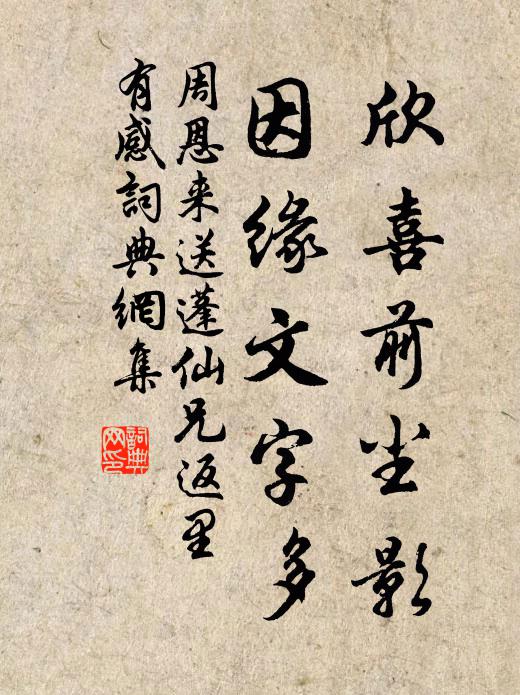 欣喜前尘影
因缘文字多
周恩来送蓬仙兄返里
有感词典網集
詞典
网印